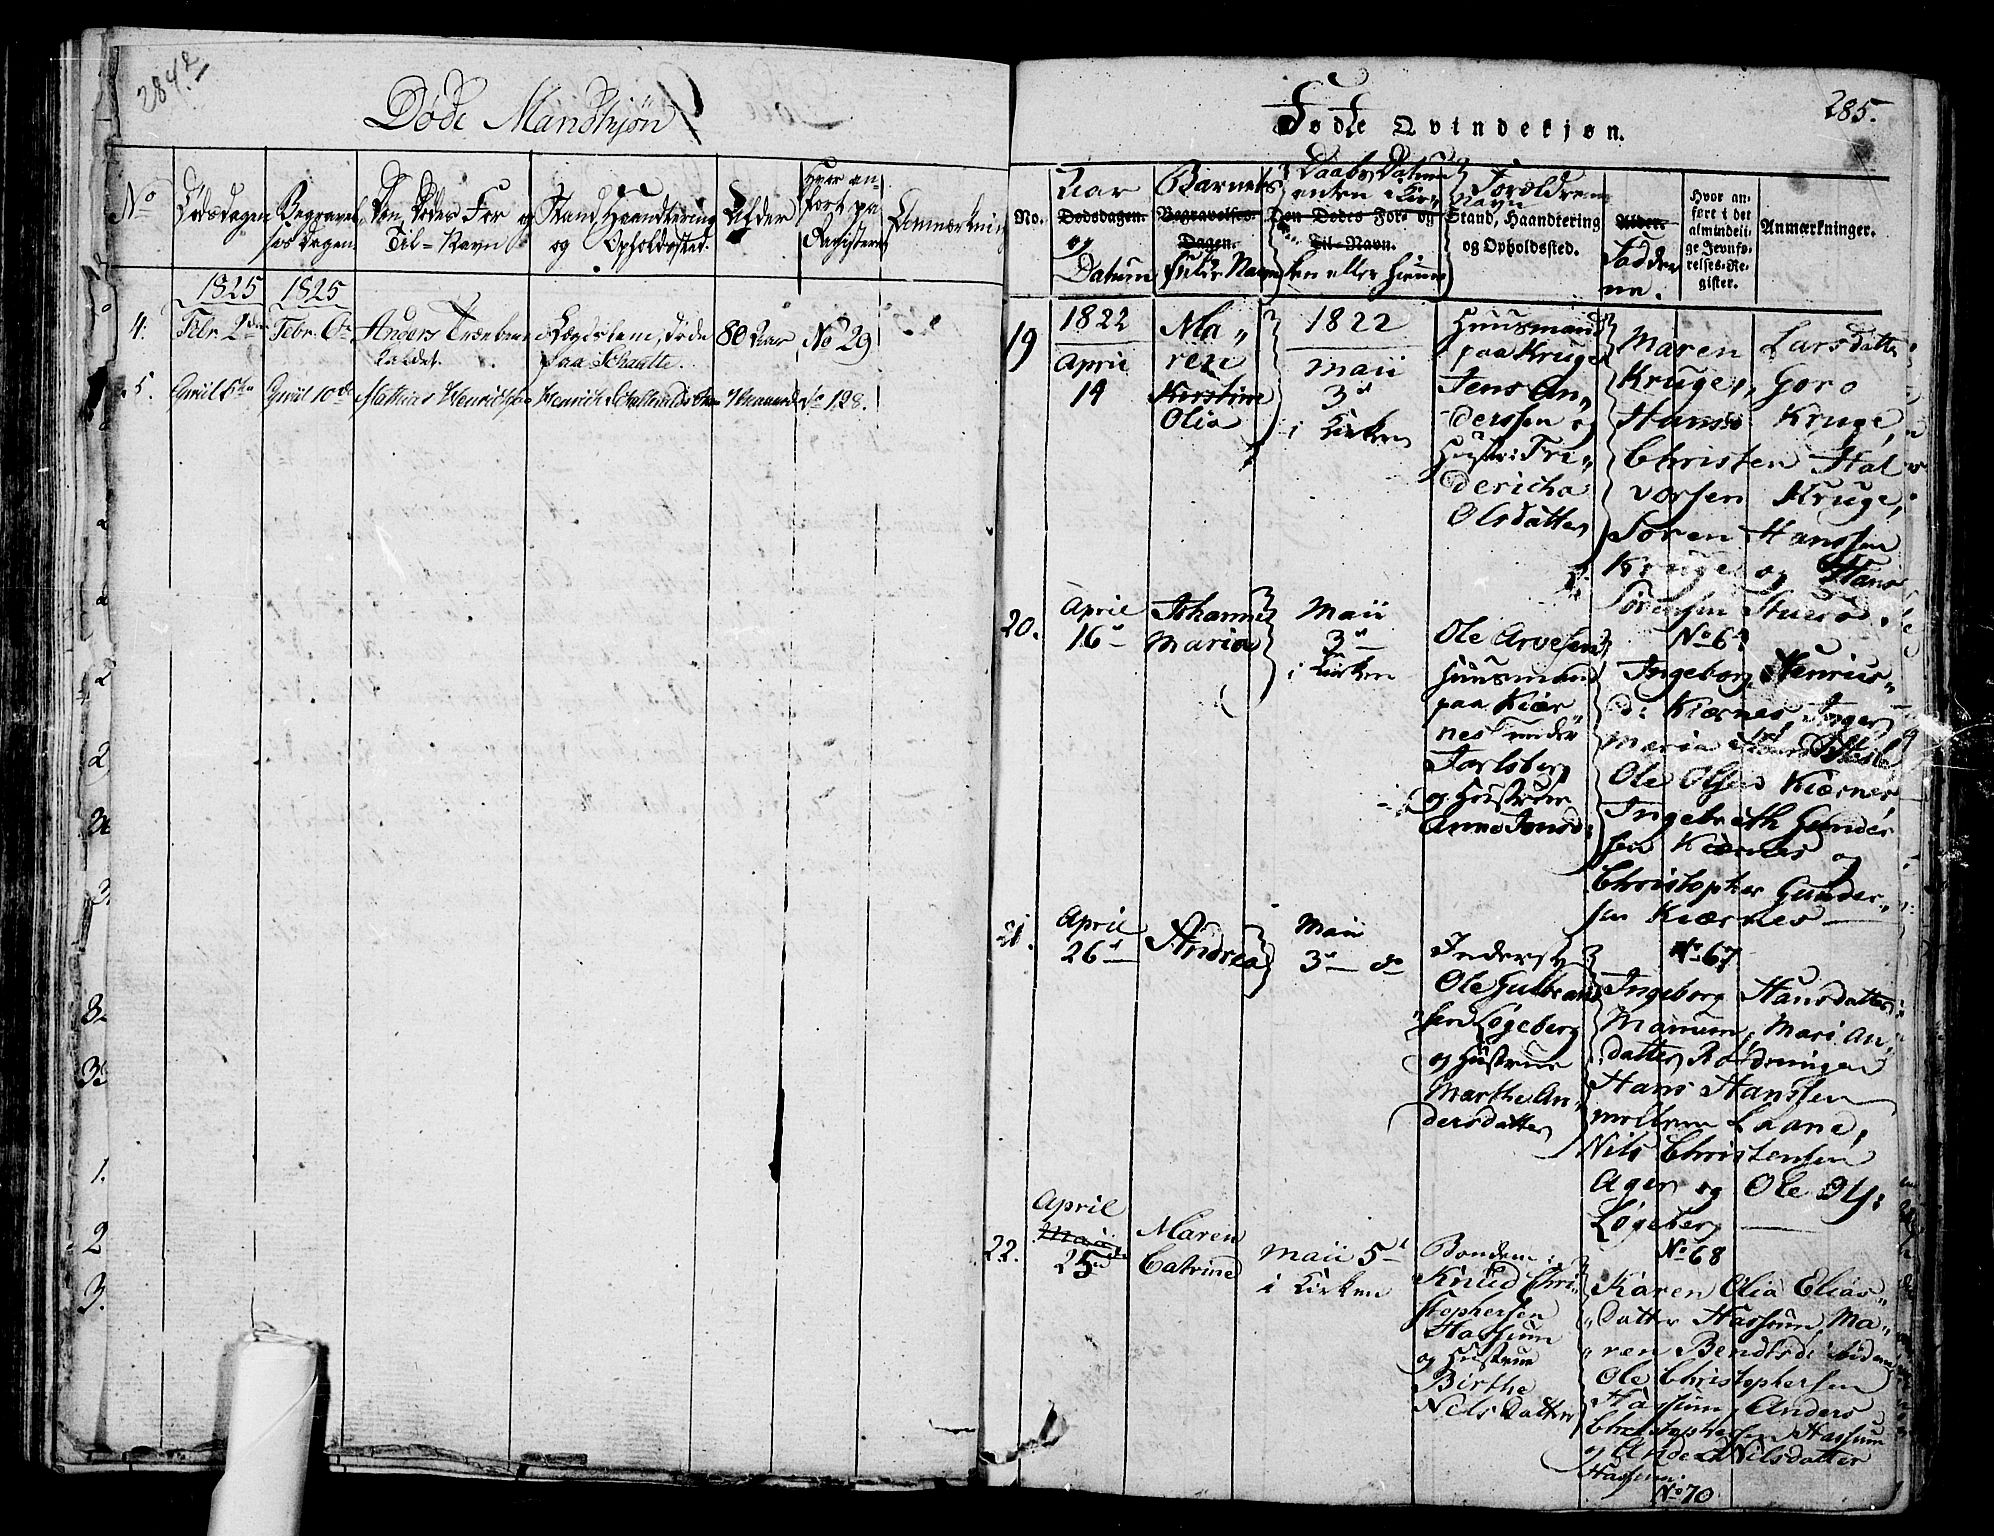 284.
Døde Mandkjön
No
Dödsdagen
Begravel-
ses Dagen
Den Dödes For og
Til-Navn
Stand, Haandtering
og Opholdssted.
Alder
Hvor an-
fört paa
Registeret
Anmærkning
1825
1825
4.
Febr. 2den
Febr. 6te
Anders
Lægdslem, døde
80 Aar
No 29
paa
5.
April 5te
April 10de
Mathias Henrichsen
Henrich
No 128.
285.
Fødte Qvindekjøn.
No.
Aar
Dødsdagen.
og
Datum
Barnets
Begravelses-
Dagen.
fulde Navn
Daabs Datum
enten i Kir-
Den Dødes For- og
Til-Navn.
ken eller hiemme
Forældrenes
Navn
Stand, Haandtering
og Opholdssted.
Alder.
Fadderne.
Hvor an-
ført i det
almindeli-
ge Jevnfø-
relses-Re-
gister.
Anmærkninger.
19
1822
April
14
Ma-
ren
Kirstine
Olia
1822
Maii
3d
i Kirken
Huusmand
paa Kruge
Jens An-
derssen og
Hustr: Fri-
dericha
Olsdatter
Maren Larsdatter
Kruge, Goro
Hansd Kruge,
Christen Hal
vorsen Kruge,
Soren Hanssen
Kruge og Hans
Sørensen
No 6
20.
April
16d
Johanne
Maria
Maii
3d
i Kirken
Ole Arvesen
Huusmand
paa Kiær
nes under
Jarlsberg
og Hustrue
Anne Jensd:
Ingeborg Henrius-
d: Kiærnes, Inger
Maria
Ole Olsen Kiærnes
Ingebreth Gunder
sen Kiærnes og
Christopher Gunder-
sen Kiærnes
No 67
21.
April
26d
Andrea
Maii
3d do
Inderst
Ole Gulbrand
sen Løgeberg
og Hustrue
Marthe An-
dersdatter
Ingeborg Hansdatter
Manum, Mari An-
datter Rødningen
Hans Hanssen
mellem Laane,
Nils Christensen
Ager og Ole Ols:
Løgeberg
No 68
22.
April
Maii
25d
Maren
Catrine
Maii 5d
i Kirken
Bonden:
Knud Chri-
stophersen
Hassum
og Hustrue
Birthe
Nils Datter
Karen Olia Elias-
Datter Hassum Ma-
ren Bendtsd:
Ole Christophersen
Hassum, Anders
Christophersen Hassum
og Nilsdatter
Hassum.
No 70